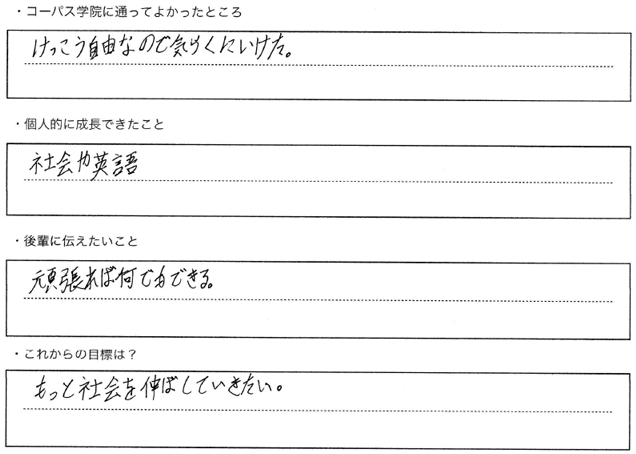 ・コーパス学院に通ってよかったところ
けっこう自由なので気らくにいけた。
・個人的に成長できたこと
社会や英語
・後輩に伝えたいこと
頑張れば何でもできる。
・これからの目標は？
もっと社会を伸ばしていきたい。